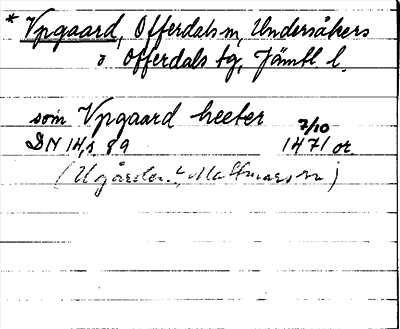 * Vpgaard, Offerdals sn, Undersåkers
o Offerdals tg, Jämtl. l.
som Vpgaard heeter 7/10
DN 14, s. 89 1471 or.
(Ugården?, Mattmars sn)